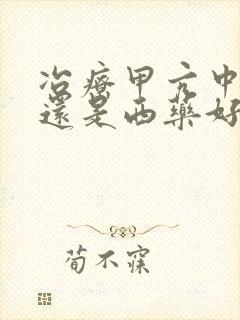 治療甲亢中
還是西藥好
荀不寐